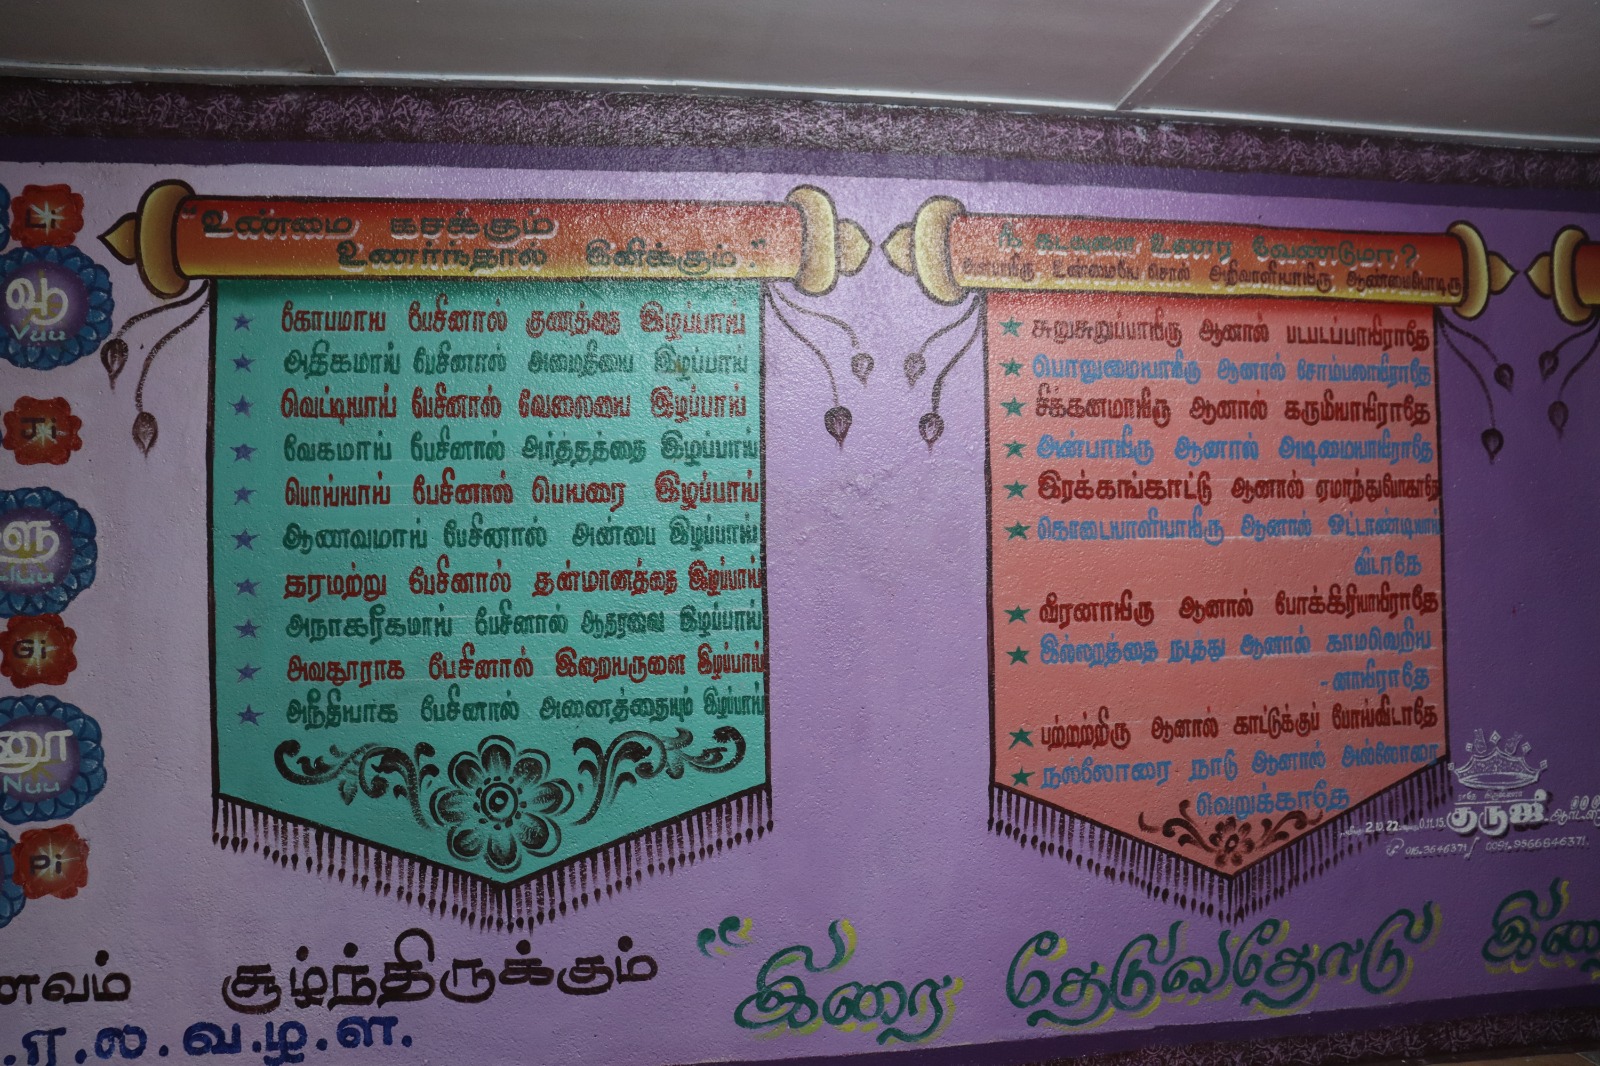 "உண்மை கசக்கும்
உணர்ந்தால் இனிக்கும்."
கோபமாய் பேசினால் குணத்தை இழப்பாய்
அதிகமாய் பேசினால் அமைதியை இழப்பாய்
வெட்டியாய் பேசினால் வேலையை இழப்பாய்
வேகமாய் பேசினால் அர்த்தத்தை இழப்பாய்
பொய்யாய் பேசினால் பெயரை இழப்பாய்
ஆணவமாய் பேசினால் அன்பை இழப்பாய்
தரமற்று பேசினால் தன்மானத்தை இழப்பாய்
அநாகரீகமாய் பேசினால் ஆதரவை இழப்பாய்
அவதூராக பேசினால் இறையருளை இழப்பாய்
அநீதியாக பேசினால் அனைத்தையும் இழப்பாய்
நீ கடவுளை உணர வேண்டுமா?
உண்மையே சொல் அறிவாளியாயிரு, ஆண்மையோடிரு
சுறுசுறுப்பாயிரு ஆனால் படபடப்பாயிராதே
பொறுமையாயிரு ஆனால் சோம்பலாயிராதே
சிக்கனமாயிரு ஆனால் கருமியாயிராதே
அன்பாயிரு ஆனால் அடிமையாயிராதே
இரக்கங்காட்டு ஆனால் ஏமாந்துபோகாதே
கொடையாளியாயிரு ஆனால் ஓட்டாண்டியாய்
விடாதே
வீரனாயிரு ஆனால் போக்கிரியாயிராதே
இல்லறத்தை நடத்து ஆனால் காமவெறிய
-னாயிராதே
பற்றற்றிரு ஆனால் காட்டுக்குப் போய்விடாதே
நல்லோரை நாடு ஆனால் அல்லோரை
வெறுக்காதே
குருஜீ ஆர்ட்ஸ்
2.10.22
016.3646371/ 0091.9566646371.
Li
வூ
Vuu
Ji
ளூ
Gi
ணூ
Nuu
Pi
னவம் சூழ்ந்திருக்கும்
.ர.ல.வ.ழ.ள.
"இறை தேடுவதோடு இரை